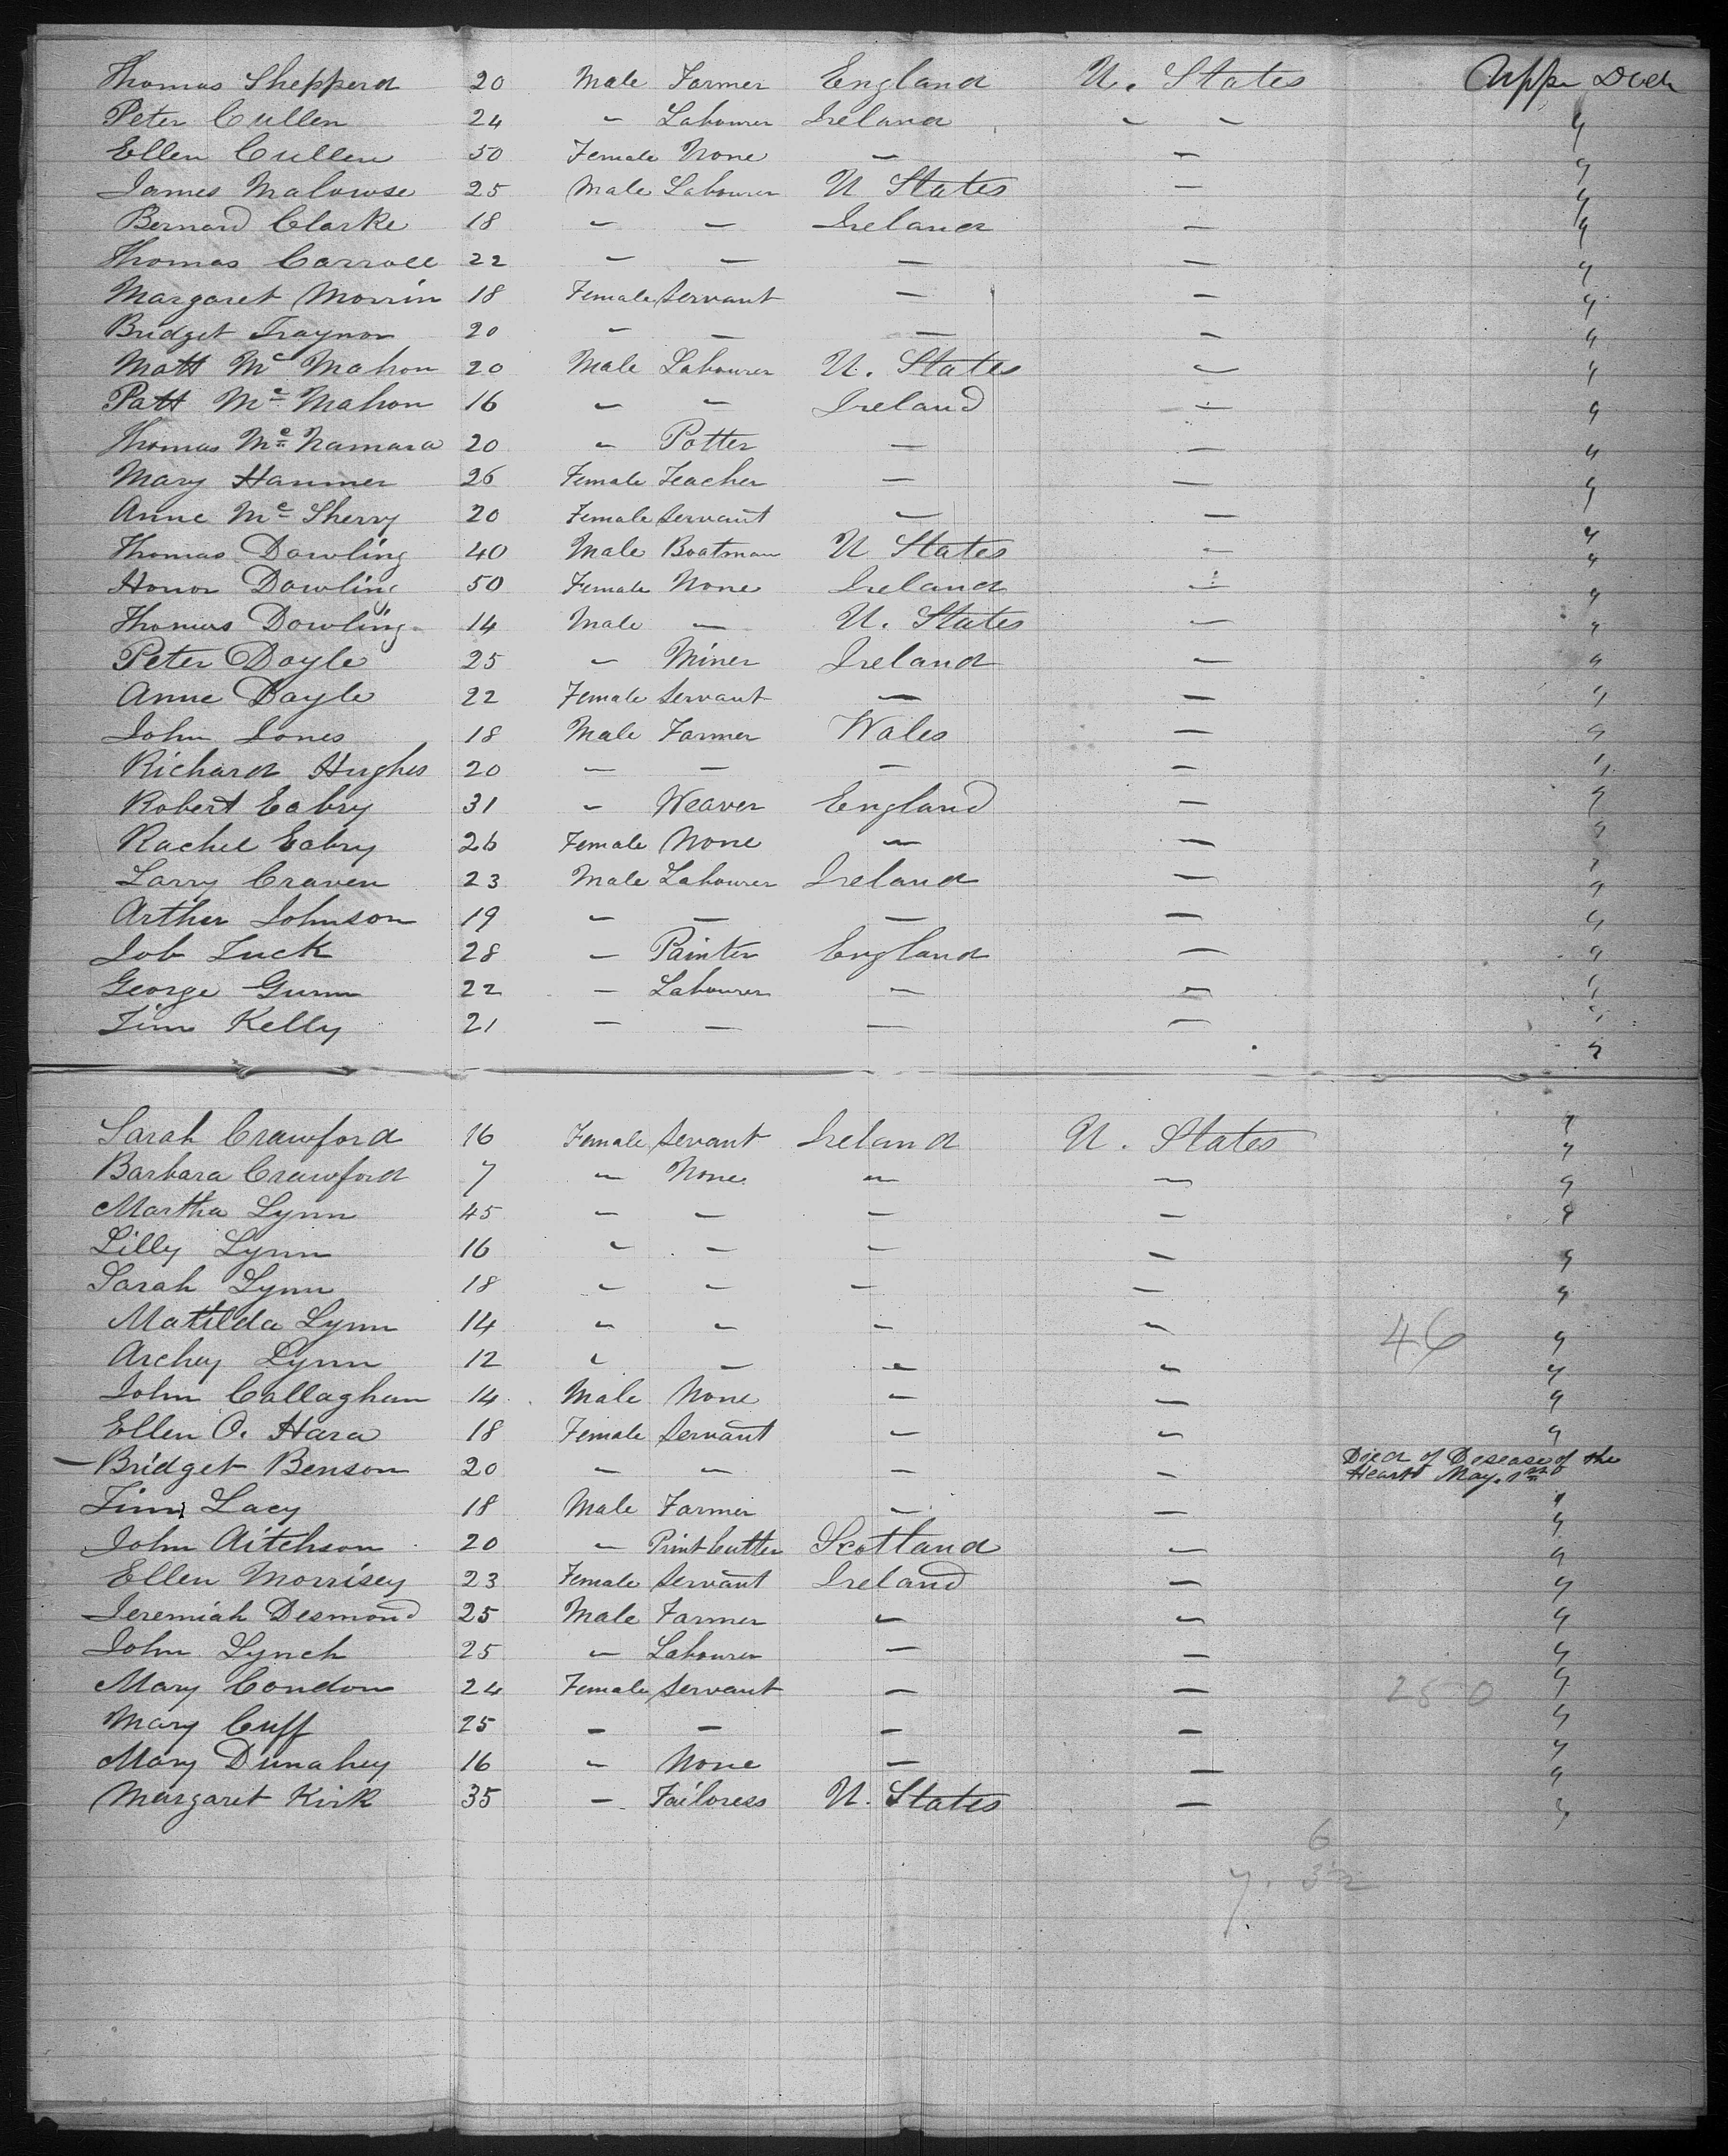 Thomas Shepperd 20 Male Farmer England U. States Upper Deck
Peter Cullen 24 " Labourer Ireland " " "
Ellen Cullen 50 Female None — — "
James Malowse 25 Male Labourer U States — "
Bernard Clarke 18 — — Ireland — "
Thomas Carroll 22 — — — — "
Margaret Morrin 18 Female Servant — — "
Bridget Traynor 20 — — — — "
Matt Mc Mahon 20 Male Labourer U. States — "
Patt Mc Mahon 16 — — Ireland — "
Thomas Mc Namara 20 " Potter — — "
Mary Hanmer 26 Female Teacher — — "
Anne Mc Sherry 20 Female Servant — — "
Thomas Dowling 40 Male Boatman U States — "
Honor Dowling 50 Female None Ireland — "
Thomas Dowling 14 Male — U. States — "
Peter Doyle 25 — Miner Ireland — "
Anne Doyle 22 Female Servant — — "
John Jones 18 Male Farmer Wales — "
Richard Hughes 20 — — — — "
Robert Eabry 31 — Weaver England — "
Rachel Eabry 26 Female None — — "
Larry Craven 23 Male Labourer Ireland — "
Arther Johnson 19 — — — — "
Job Tuck 28 — Painter England — "
George Gunn 22 — Labourer — — "
Tim Kelly 21 — — — — "
Sarah Crawford 16 Female Servant Ireland U. States "
Barbara Crawford 7 — None — — "
Martha Lynn 45 — — — — "
Lilly Lynn 16 — — — — "
Sarah Lynn 18 — — — — "
Matilda Lynn 14 — — — — 46 "
Archey Lynn 12 — — — — "
John Callaghan 14 Male None — — "
Ellen O. Hara 18 Female Servant — — "
— Bridget Benson 20 — — — — Died of Desease of the
Heart May
Tim Lacy 18 Male Farmer — — "
John Aitchson 20 — Print Cutter Scotland — "
Ellen Morrisey 23 Female Servant Ireland — "
Jeremiah Desmond 25 Male Farmer — — "
John Lynch 25 — Labourer — — "
Mary Condon 24 Female Servant — — "
Mary Cuff 25 — — — — "
Mary Dunahey 16 — None — — "
Margaret Kirk 35 — Tailoress U. States — "
6